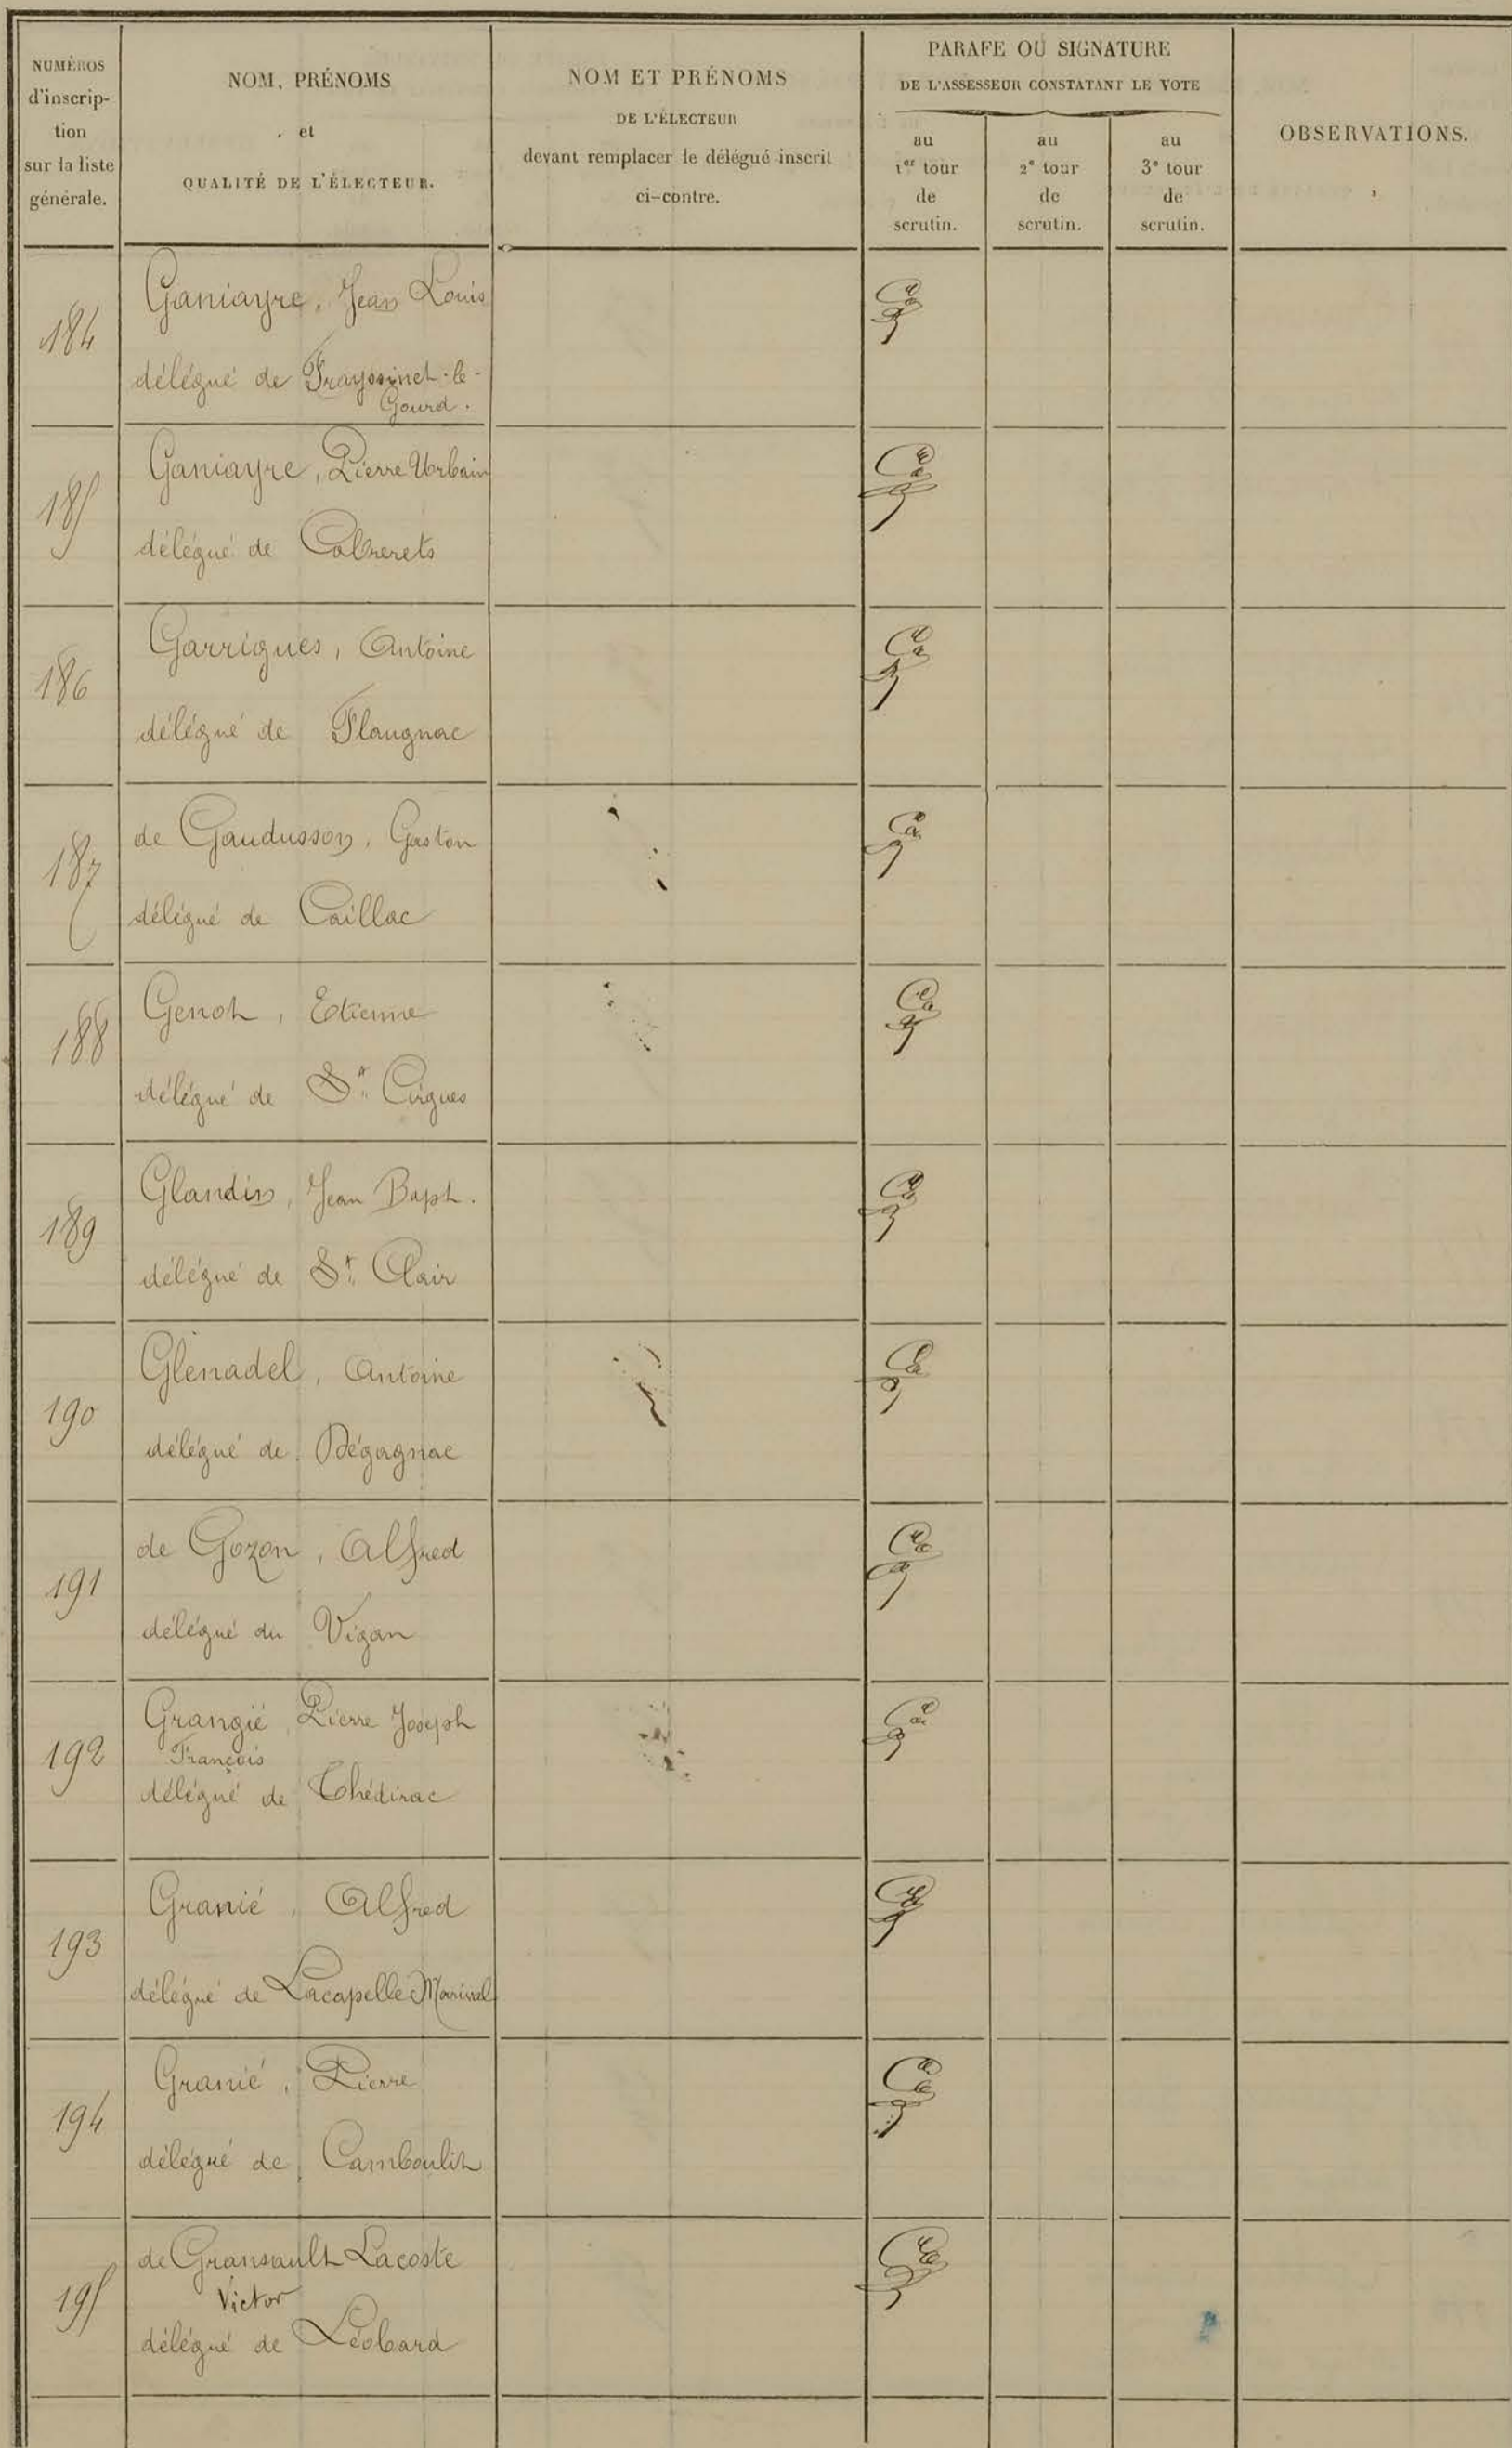 NUMÉROS
d'inscrip-
tion
sur la liste
générale.
NOM, PRÉNOMS
et
QUALITÉ DE L'ÉLECTEUR.
NOM ET PRÉNOMS
DE L'ÉLECTEUR
devant remplacer le délégué inscrit
ci-contre.
PARAFE OU SIGNATURE
DE L'ASSESSEUR CONSTATANT LE VOTE
au
1er tour
de
scrutin.
au
2e tour
de
scrutin.
au
3e tour
de
scrutin.
OBSERVATIONS.
184
Ganiayre, Jean Louis
délégué de Frayssinet-le-
Gourd.
185
Ganiayre, Pierre Urbain
délégué de Cabrerets
186
Garrigues, Antoine
délégué de Flaugnac
187
de Gaudusson, Gaston
délégué de Caillac
188
Genot, Etienne
délégué de St Cirgues
189
Glandin, Jean Bapt.
délégué de St Clair
190
Glénadel, Antoine
délégué de Dégagnac
191
de Gozon, Alfred
délégué du Vigan
192
Grangié, Pierre Joseph
François
délégué de Thédirac
193
Granié, Alfred
délégué de Lacapelle Marival
194
Granié, Pierre
délégué de Camboulit
195
de Gransault Lacoste
Victor
délégué de Léobard